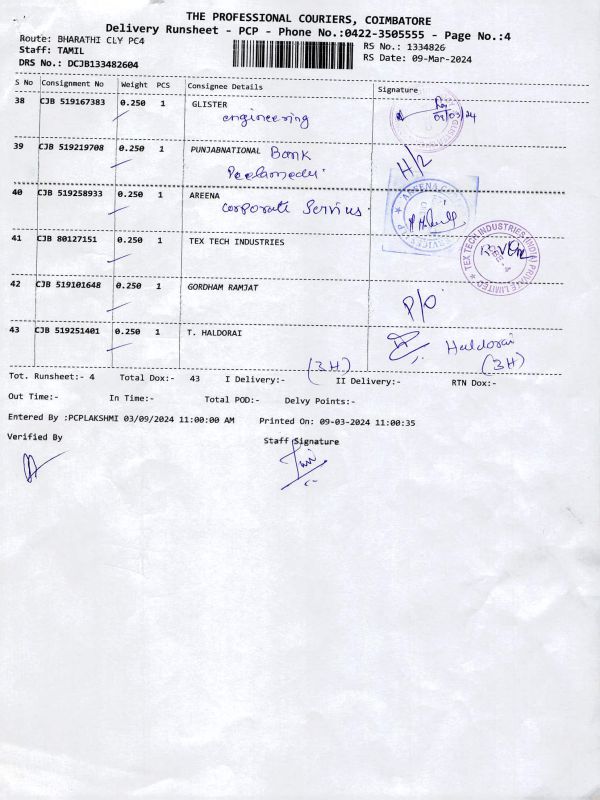 THE PROFESSIONAL COURIERS, COIMBATORE
Delivery Runsheet - PCP - Phone No.:0422-3505555 - Page No.:4
Route: BHARATHI CLY PC4
RS No.: 1334826
Staff: TAMIL
RS Date: 09-Mar-2024
DRS No.: DCJB133482604
S No Consignment No Weight PCS Consignee Details Signature
38 CJB 519167383 0.250 1 GLISTER
engineering
09/03/24
39 CJB 519219708 0.250 1 PUNJABNATIONAL Bank
Peelamedu
H/2
40 CJB 519258933 0.250 1 AREENA
Corporate Servius
41 CJB 80127151 0.250 1 TEX TECH INDUSTRIES
TEX TECH INDUSTRIES (INDIA) PRIVATE LIMITED
CBE-4
42 CJB 519101648 0.250 1 GORDHAM RAMJAT
P/O
43 CJB 519251401 0.250 1 T. HALDORAI
Haldorai
(3H) (3H)
Tot. Runsheet:- 4 Total Dox:- 43 I Delivery:- II Delivery:- RTN Dox:-
Out Time:- In Time:- Total POD:- Delvy Points:-
Entered By :PCPLAKSHMI 03/09/2024 11:00:00 AM Printed On: 09-03-2024 11:00:35
Verified By Staff Signature